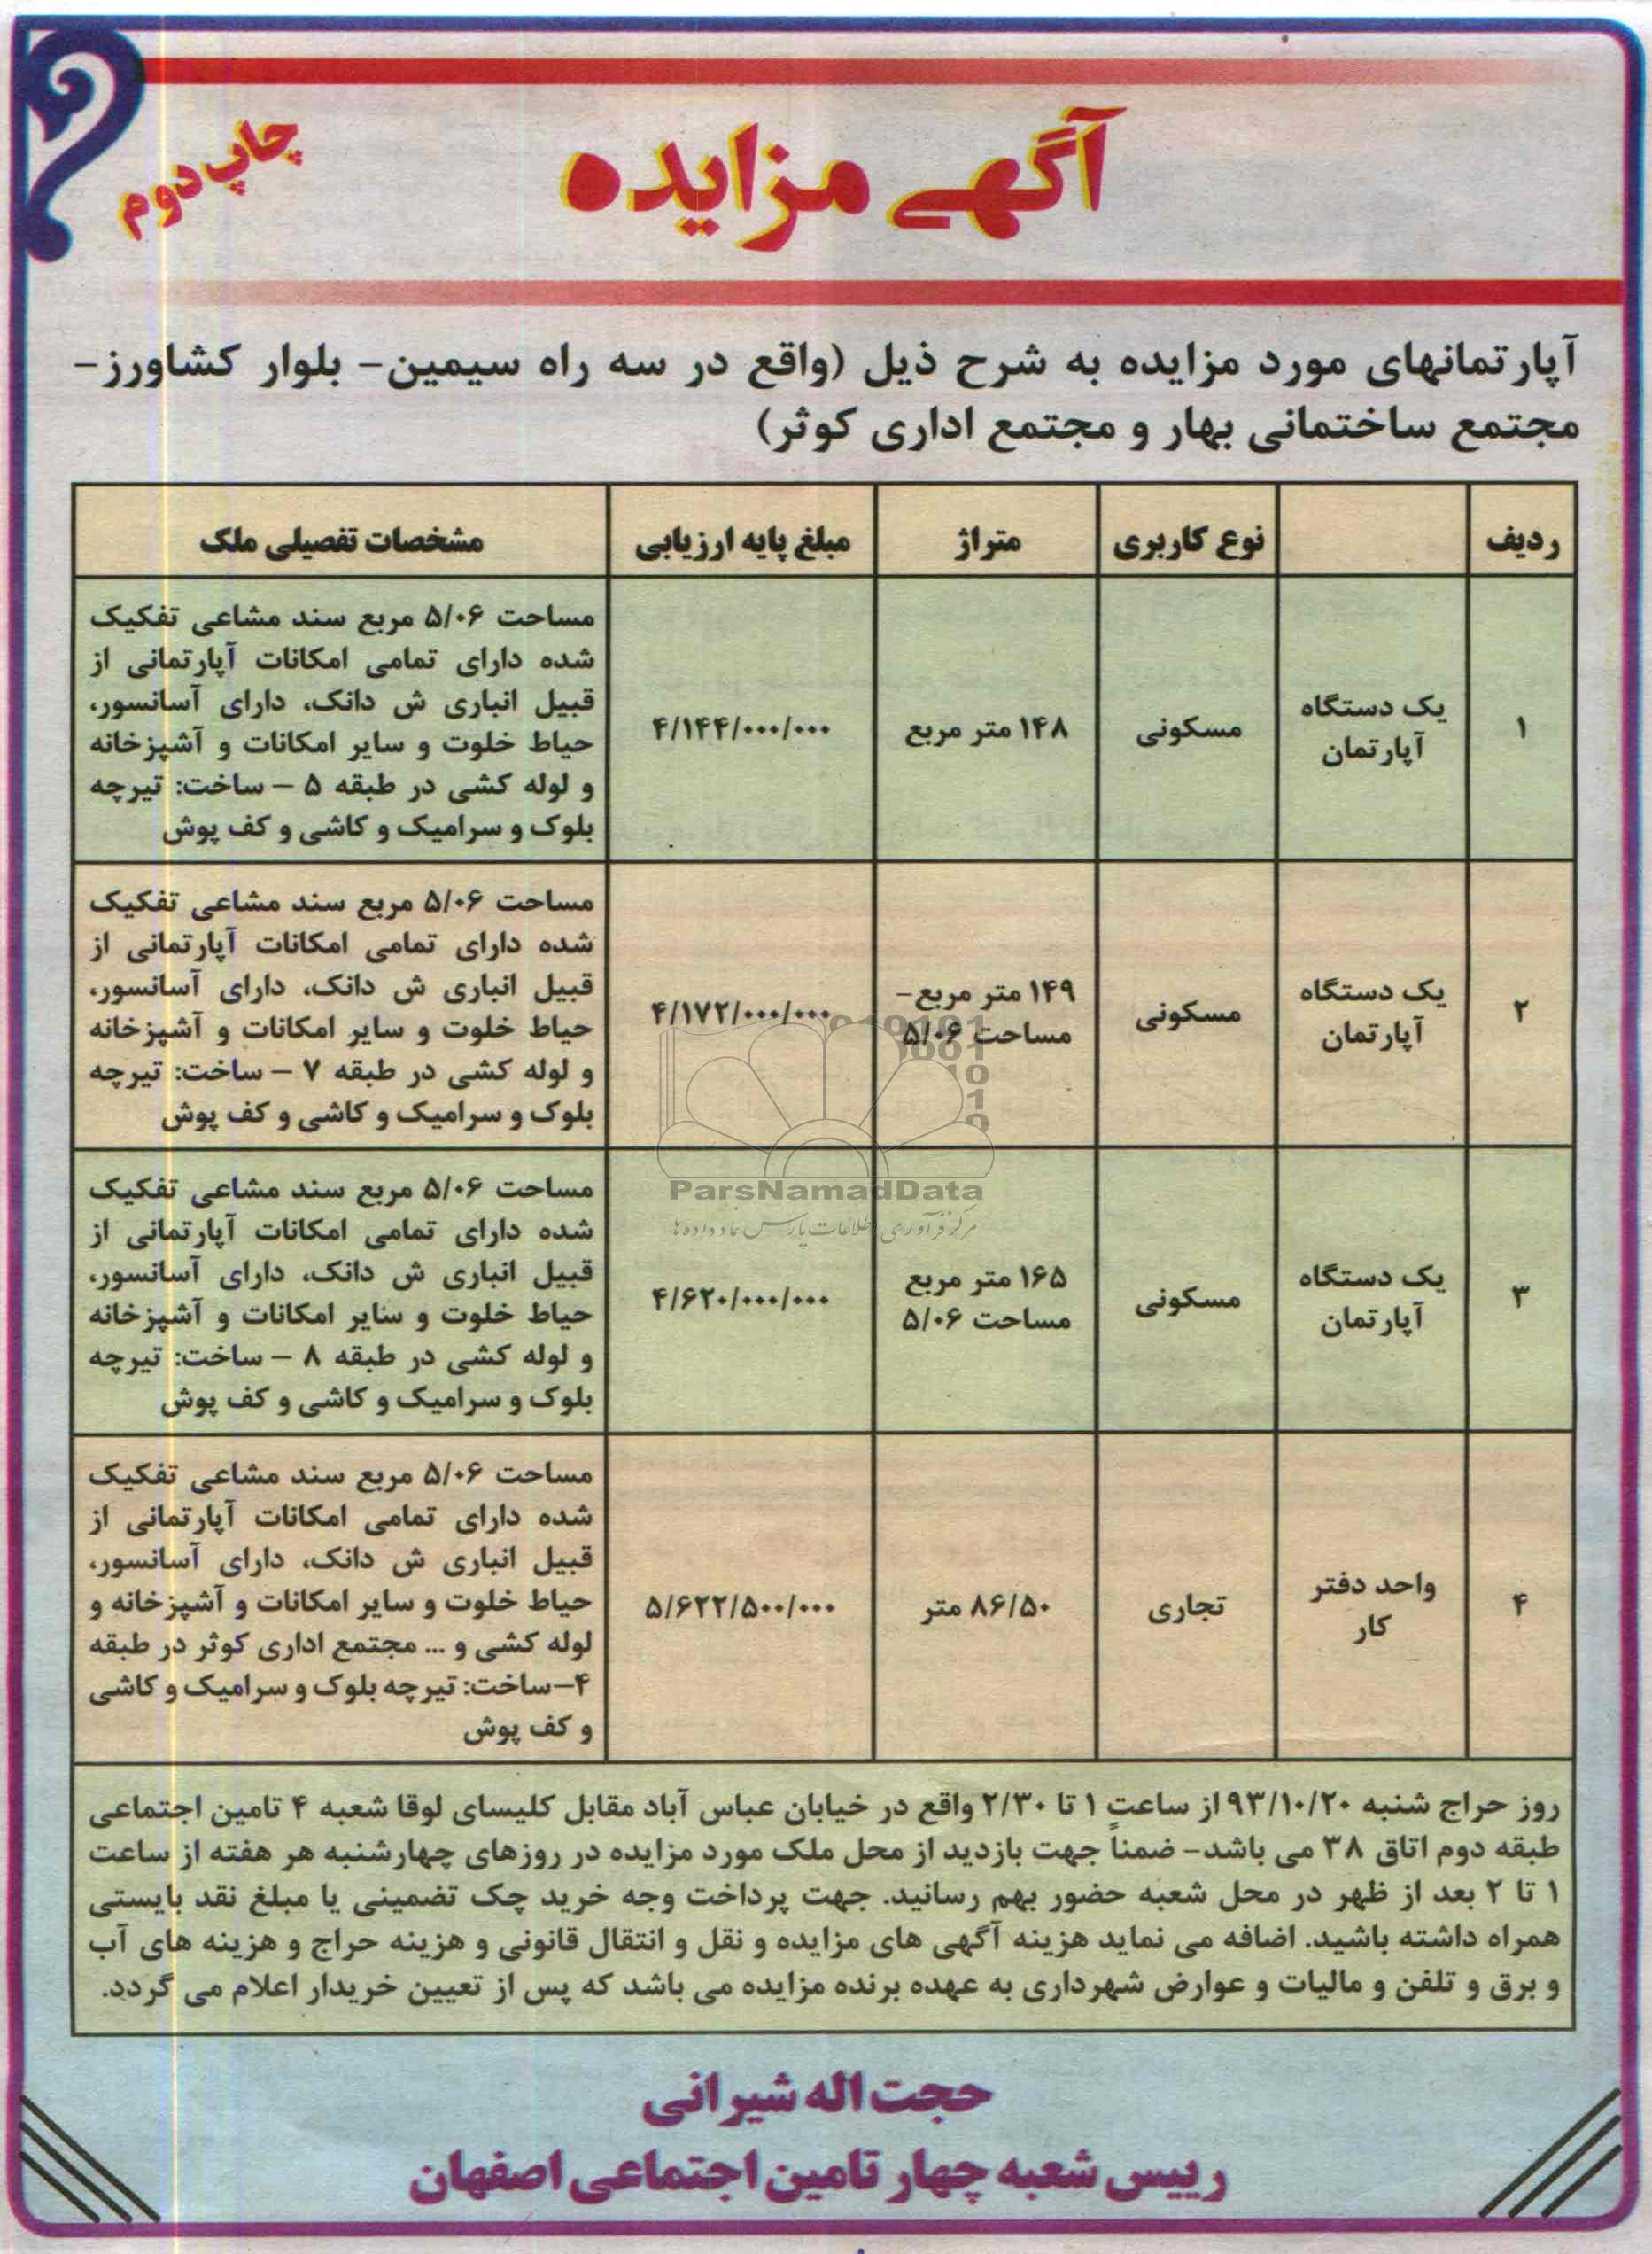 آگهی مزایده
چاپ دوم
آپارتمانهای مورد مزایده به شرح ذیل (واقع در سه راه سیمین- بلوار کشاورز-
مجتمع ساختمانی بهار و مجتمع اداری کوثر)
ردیف نوع کاربری متراژ مبلغ پایه ارزیابی مشخصات تفصیلی ملک
۱
یک دستگاه
آپارتمان
مسکونی
۱۴۸ متر مربع
۴/۱۴۴/۰۰۰/۰۰۰
مساحت ۵/۰۶ مربع سند مشاعی تفکیک
شده دارای تمامی امکانات آپارتمانی از
قبیل انباری ش دانک، دارای آسانسور،
حیاط خلوت و سایر امکانات و آشپزخانه
و لوله کشی در طبقه ۵ – ساخت: تیرچه
بلوک و سرامیک و کاشی و کف پوش
۲
یک دستگاه
آپارتمان
مسکونی
۱۴۹ متر مربع-
مساحت ۵/۰۶
۴/۱۷۲/۰۰۰/۰۰۰
مساحت ۵/۰۶ مربع سند مشاعی تفکیک
شده دارای تمامی امکانات آپارتمانی از
قبیل انباری ش دانک، دارای آسانسور،
حیاط خلوت و سایر امکانات و آشپزخانه
و لوله کشی در طبقه ۷ – ساخت: تیرچه
بلوک و سرامیک و کاشی و کف پوش
ParsNamadData
مرکز فرآوری اطلاعات پارس نماد داده ها
۳
یک دستگاه
آپارتمان
مسکونی
۱۶۵ متر مربع
مساحت ۵/۰۶
۴/۶۲۰/۰۰۰/۰۰۰
مساحت ۵/۰۶ مربع سند مشاعی تفکیک
شده دارای تمامی امکانات آپارتمانی از
قبیل انباری ش دانک، دارای آسانسور،
حیاط خلوت و سایر امکانات و آشپزخانه
و لوله کشی در طبقه ۸ – ساخت: تیرچه
بلوک و سرامیک و کاشی و کف پوش
۴
واحد دفتر
کار
تجاری
۸۶/۵۰ متر
۵/۶۲۲/۵۰۰/۰۰۰
مساحت ۵/۰۶ مربع سند مشاعی تفکیک
شده دارای تمامی امکانات آپارتمانی از
قبیل انباری ش دانک، دارای آسانسور،
حیاط خلوت و سایر امکانات و آشپزخانه و
لوله کشی و ... مجتمع اداری کوثر در طبقه
۴-ساخت: تیرچه بلوک و سرامیک و کاشی
و کف پوش
روز حراج شنبه ۹۳/۱۰/۲۰ از ساعت ۱ تا ۲/۳۰ واقع در خیابان عباس آباد مقابل کلیسای لوقا شعبه ۴ تامین اجتماعی
طبقه دوم اتاق ۳۸ می باشد- ضمناً جهت بازدید از محل ملک مورد مزایده در روزهای چهارشنبه هر هفته از ساعت
۱ تا ۲ بعد از ظهر در محل شعبه حضور بهم رسانید. جهت پرداخت وجه خرید چک تضمینی یا مبلغ نقد بایستی
همراه داشته باشید. اضافه می نماید هزینه آگهی های مزایده و نقل و انتقال قانونی و هزینه حراج و هزینه های آب
و برق و تلفن و مالیات و عوارض شهرداری به عهده برنده مزایده می باشد که پس از تعیین خریدار اعلام می گردد.
حجت اله شیرانی
رییس شعبه چهار تامین اجتماعی اصفهان